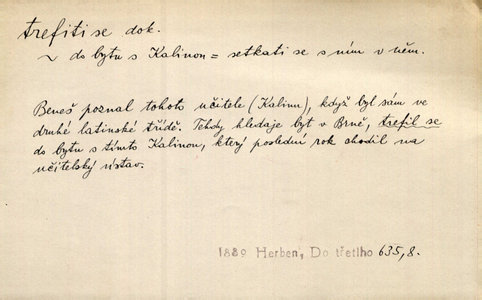 trefiti se dok.
~ do bytu s Kalinou = setkati se s ním v něm.
Beneš poznal tohoto učitele (Kalinu), když byl sám ve
druhé latinské třídě. Tehdy hledaje byt v Brně, trefil se
do bytu s tímto Kalinou, který poslední rok chodil na
učitelský ústav.
1889 Herben, Do třetího 635,8.